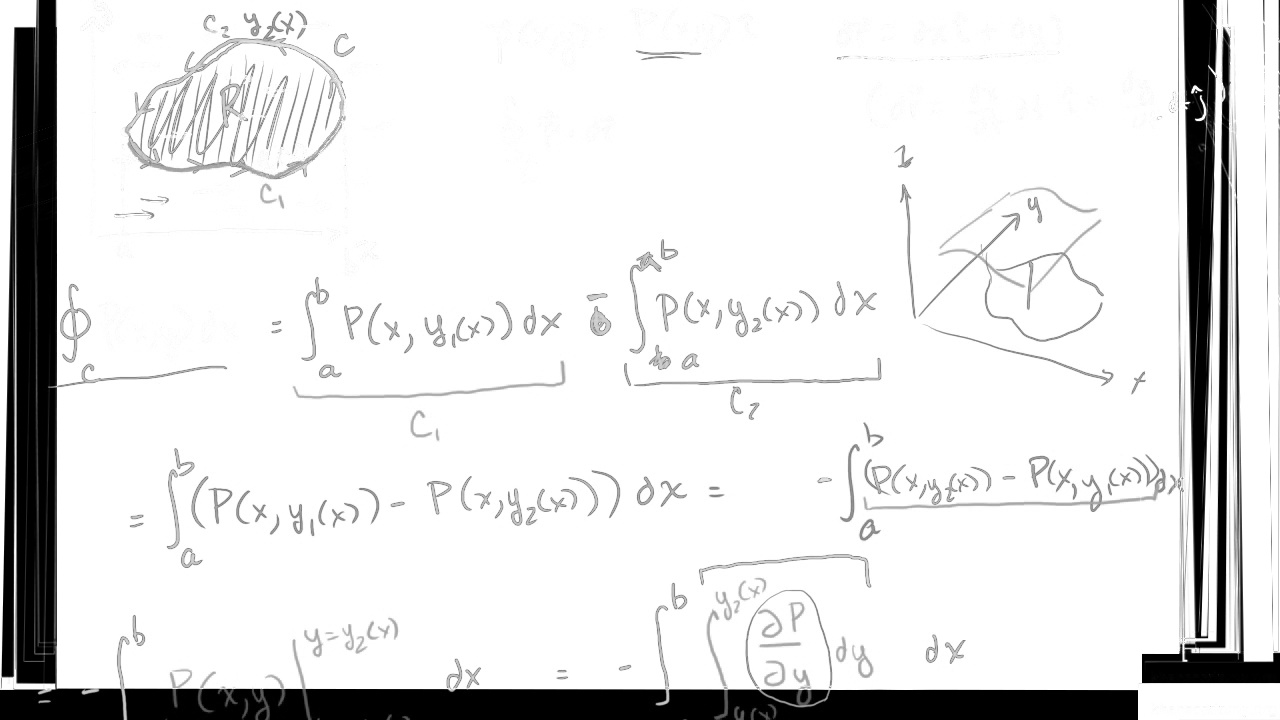 C₂ y₂(x) C
R
C₁
z
y
x
∮_C = ∫_a^b P(x, y₁(x)) dx - ∫_a^b P(x, y₂(x)) dx
C₁ C₂
= ∫_a^b (P(x, y₁(x)) - P(x, y₂(x))) dx = - ∫_a^b (P(x, y₂(x)) - P(x, y₁(x))) dx
= - ∫^b P(x, y) |^{y=y₂(x)} dx = - ∫^b ∫_{y₁(x)}^{y₂(x)} ∂P/∂y dy dx